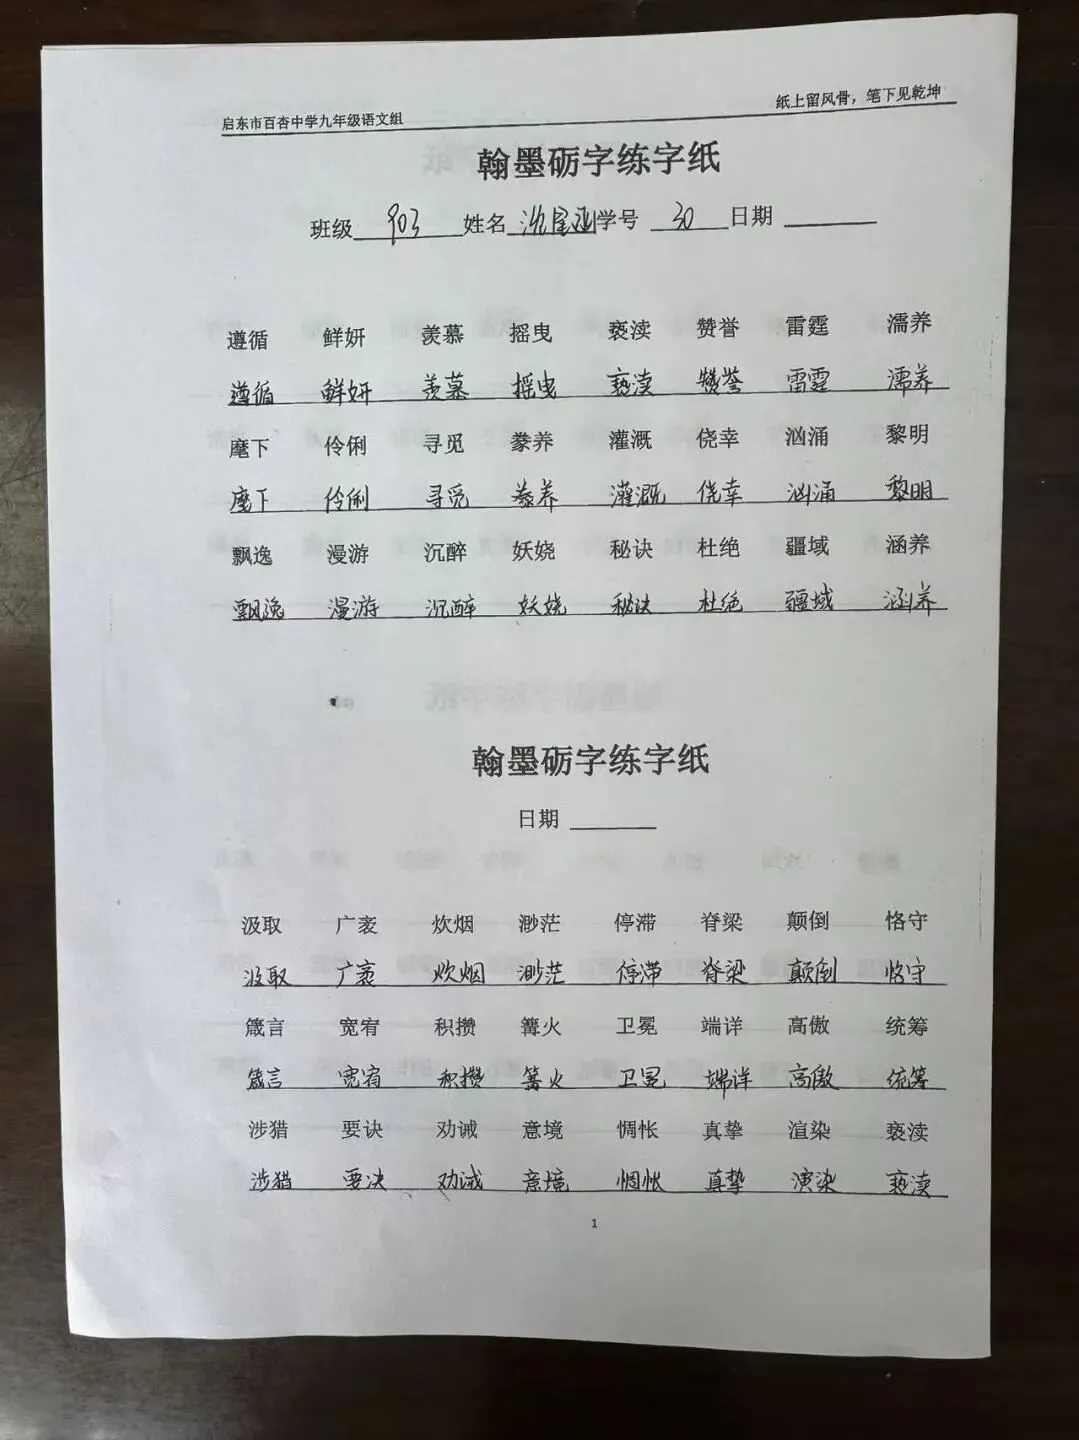 启东市百杏中学九年级语文组 纸上留风骨，笔下见乾坤
翰墨砺字练字纸
班级 903 姓名 学号 30 日期
遵循 鲜妍 羡慕 摇曳 亵渎 赞誉 雷霆 濡养
遵循 鲜妍 羡慕 摇曳 亵渎 赞誉 雷霆 濡养
麾下 伶俐 寻觅 豢养 灌溉 侥幸 汹涌 黎明
麾下 伶俐 寻觅 豢养 灌溉 侥幸 汹涌 黎明
飘逸 漫游 沉醉 妖娆 秘诀 杜绝 疆域 涵养
飘逸 漫游 沉醉 妖娆 秘诀 杜绝 疆域 涵养
翰墨砺字练字纸
日期
汲取 广袤 炊烟 渺茫 停滞 脊梁 颠倒 恪守
汲取 广袤 炊烟 渺茫 停滞 脊梁 颠倒 恪守
箴言 宽宥 积攒 篝火 卫冕 端详 高傲 统筹
箴言 宽宥 积攒 篝火 卫冕 端详 高傲 统筹
涉猎 要诀 劝诫 意境 惆怅 真挚 渲染 亵渎
涉猎 要决 劝诫 意境 惆怅 真挚 渲染 亵渎
1